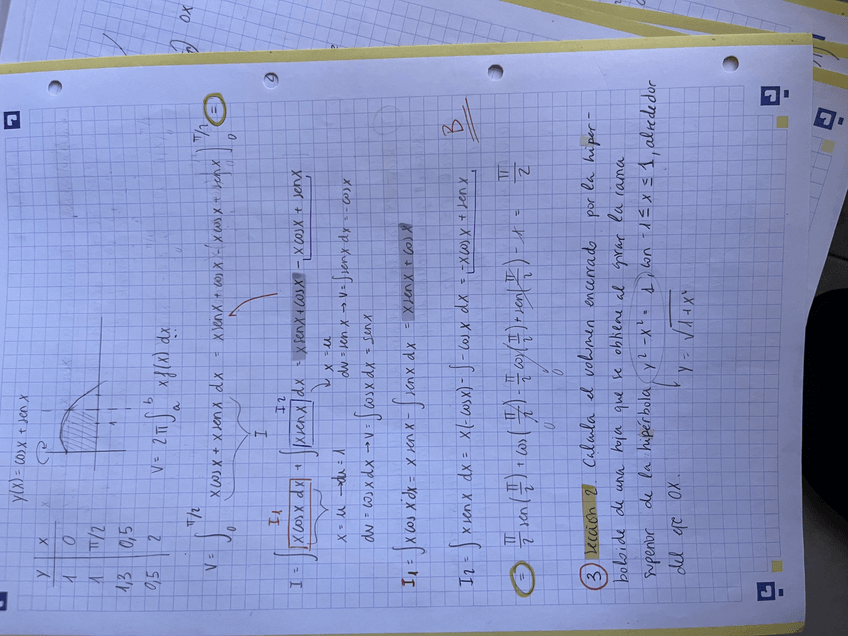 y(x) = cosx + senx
Y | X
1 | 0
1 | π/2
1,3 | 0,5
0,5 | 2
V = 2π ∫ₐᵇ x f(x) dx
V = ∫₀^{π/2} x cosx + x senx dx = x senx + cosx - (x cosx + senx ]₀^{π/2} (=)
I
I₁ I₂
I = ∫ x cosx dx + ∫ x senx dx = x senx + cosx - x cosx + senx
x = u → du = 1
dv = cosx dx → v = ∫ cosx dx = senx
x = u
dv = senx → v = ∫ senx dx = -cosx
I₁ = ∫ x cosx dx = x senx - ∫ senx dx = x senx + cosx
I₂ = ∫ x senx dx = x(-cosx) - ∫ -cosx dx = -x cosx + senx
B
(=) π/2 sen(π/2) + cos(π/2) - π/2 cos(π/2) + sen(π/2) - 1 = π/2
0 0
③ Sección 2. Calcula el volumen encerrado por la hiper-
boloide de una hoja que se obtiene al girar la rama
superior de la hipérbola y² - x² = 1, con -1 ≤ x ≤ 1, alrededor
del eje OX.
y = √1+x²
OX